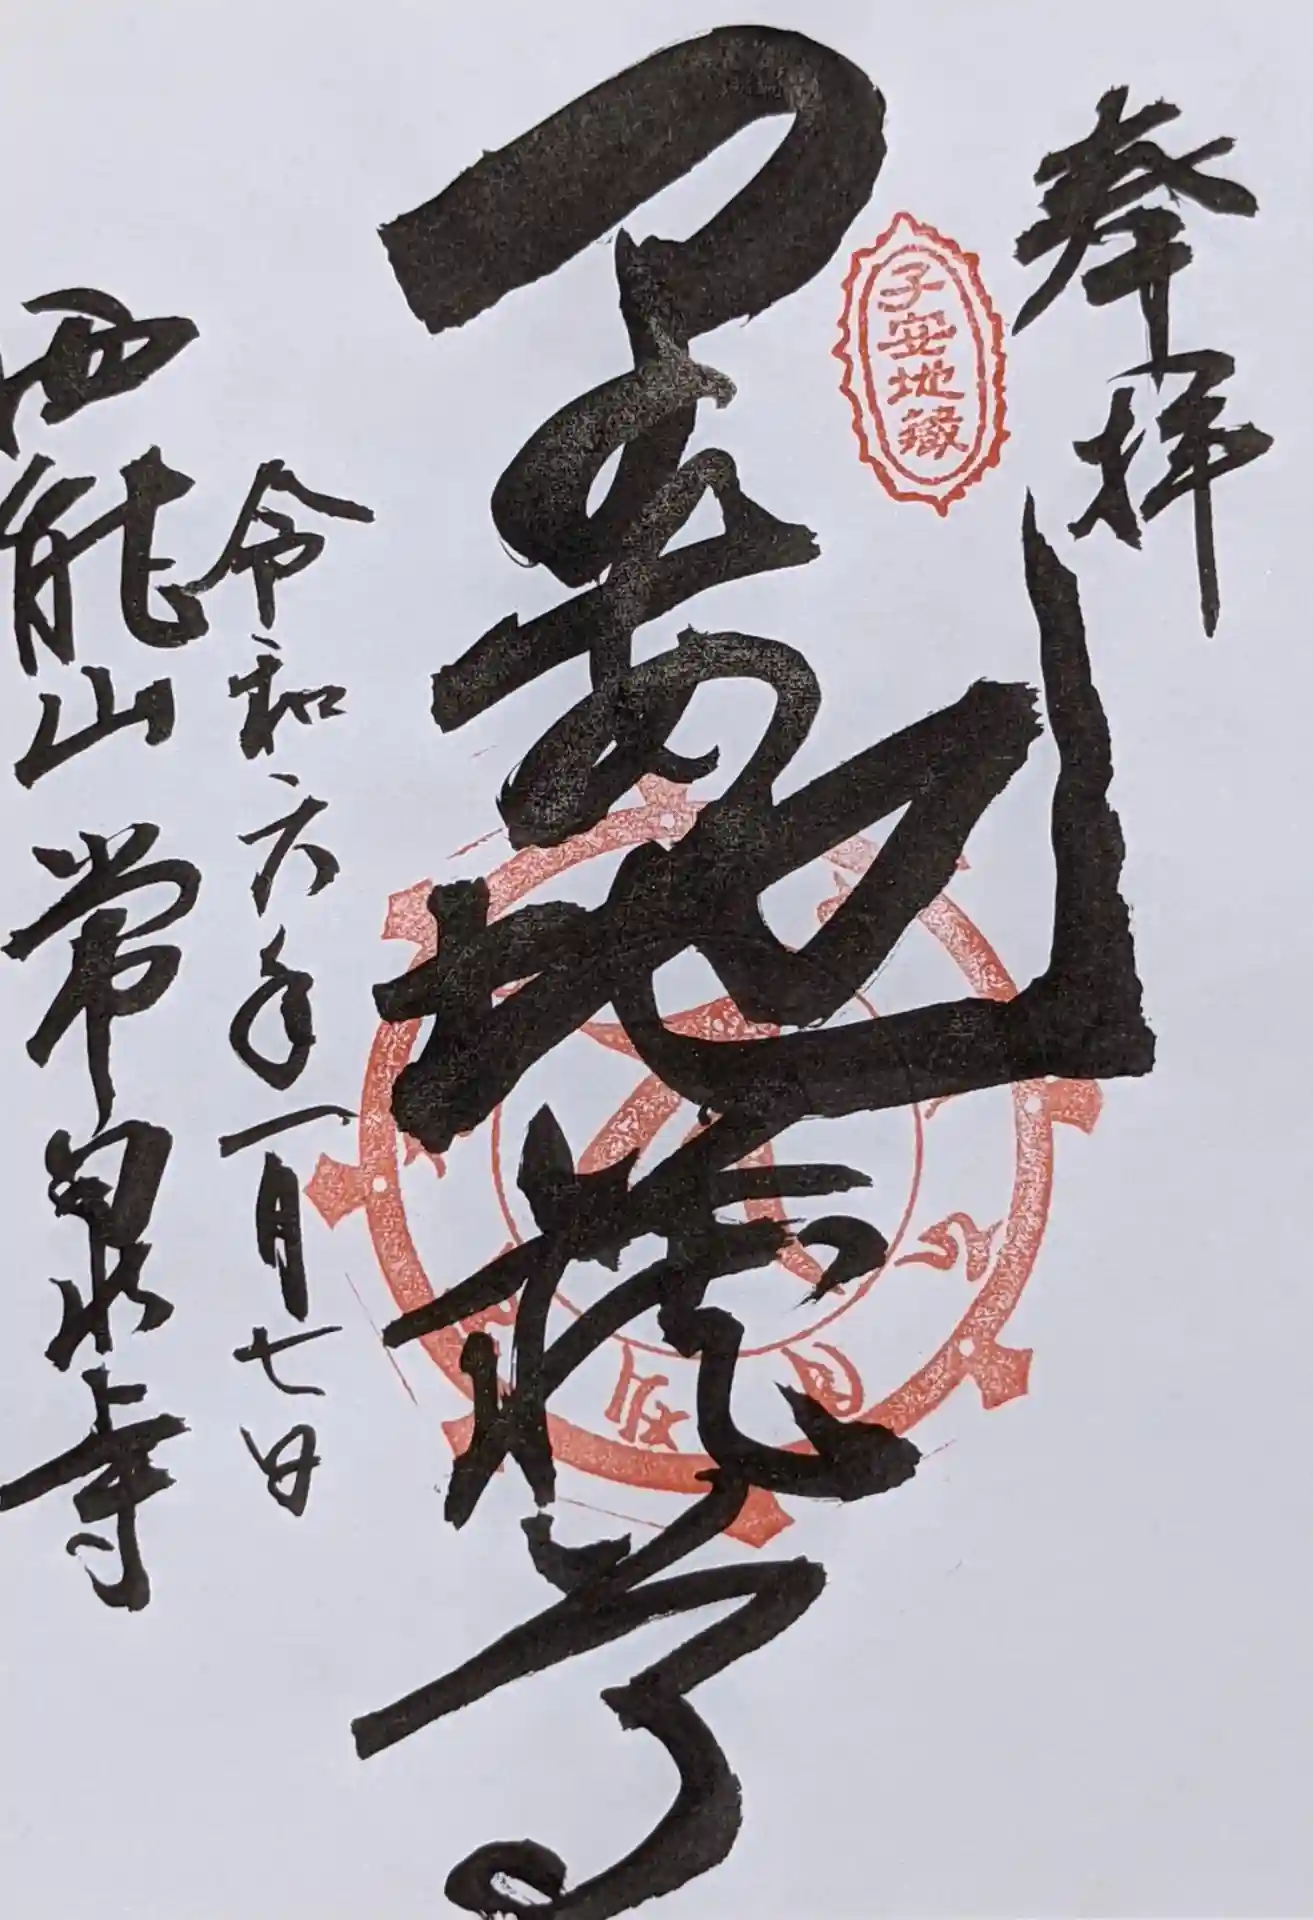 奉拝
子安地蔵
子安地蔵尊
令和六年一月七日
西龍山常泉寺